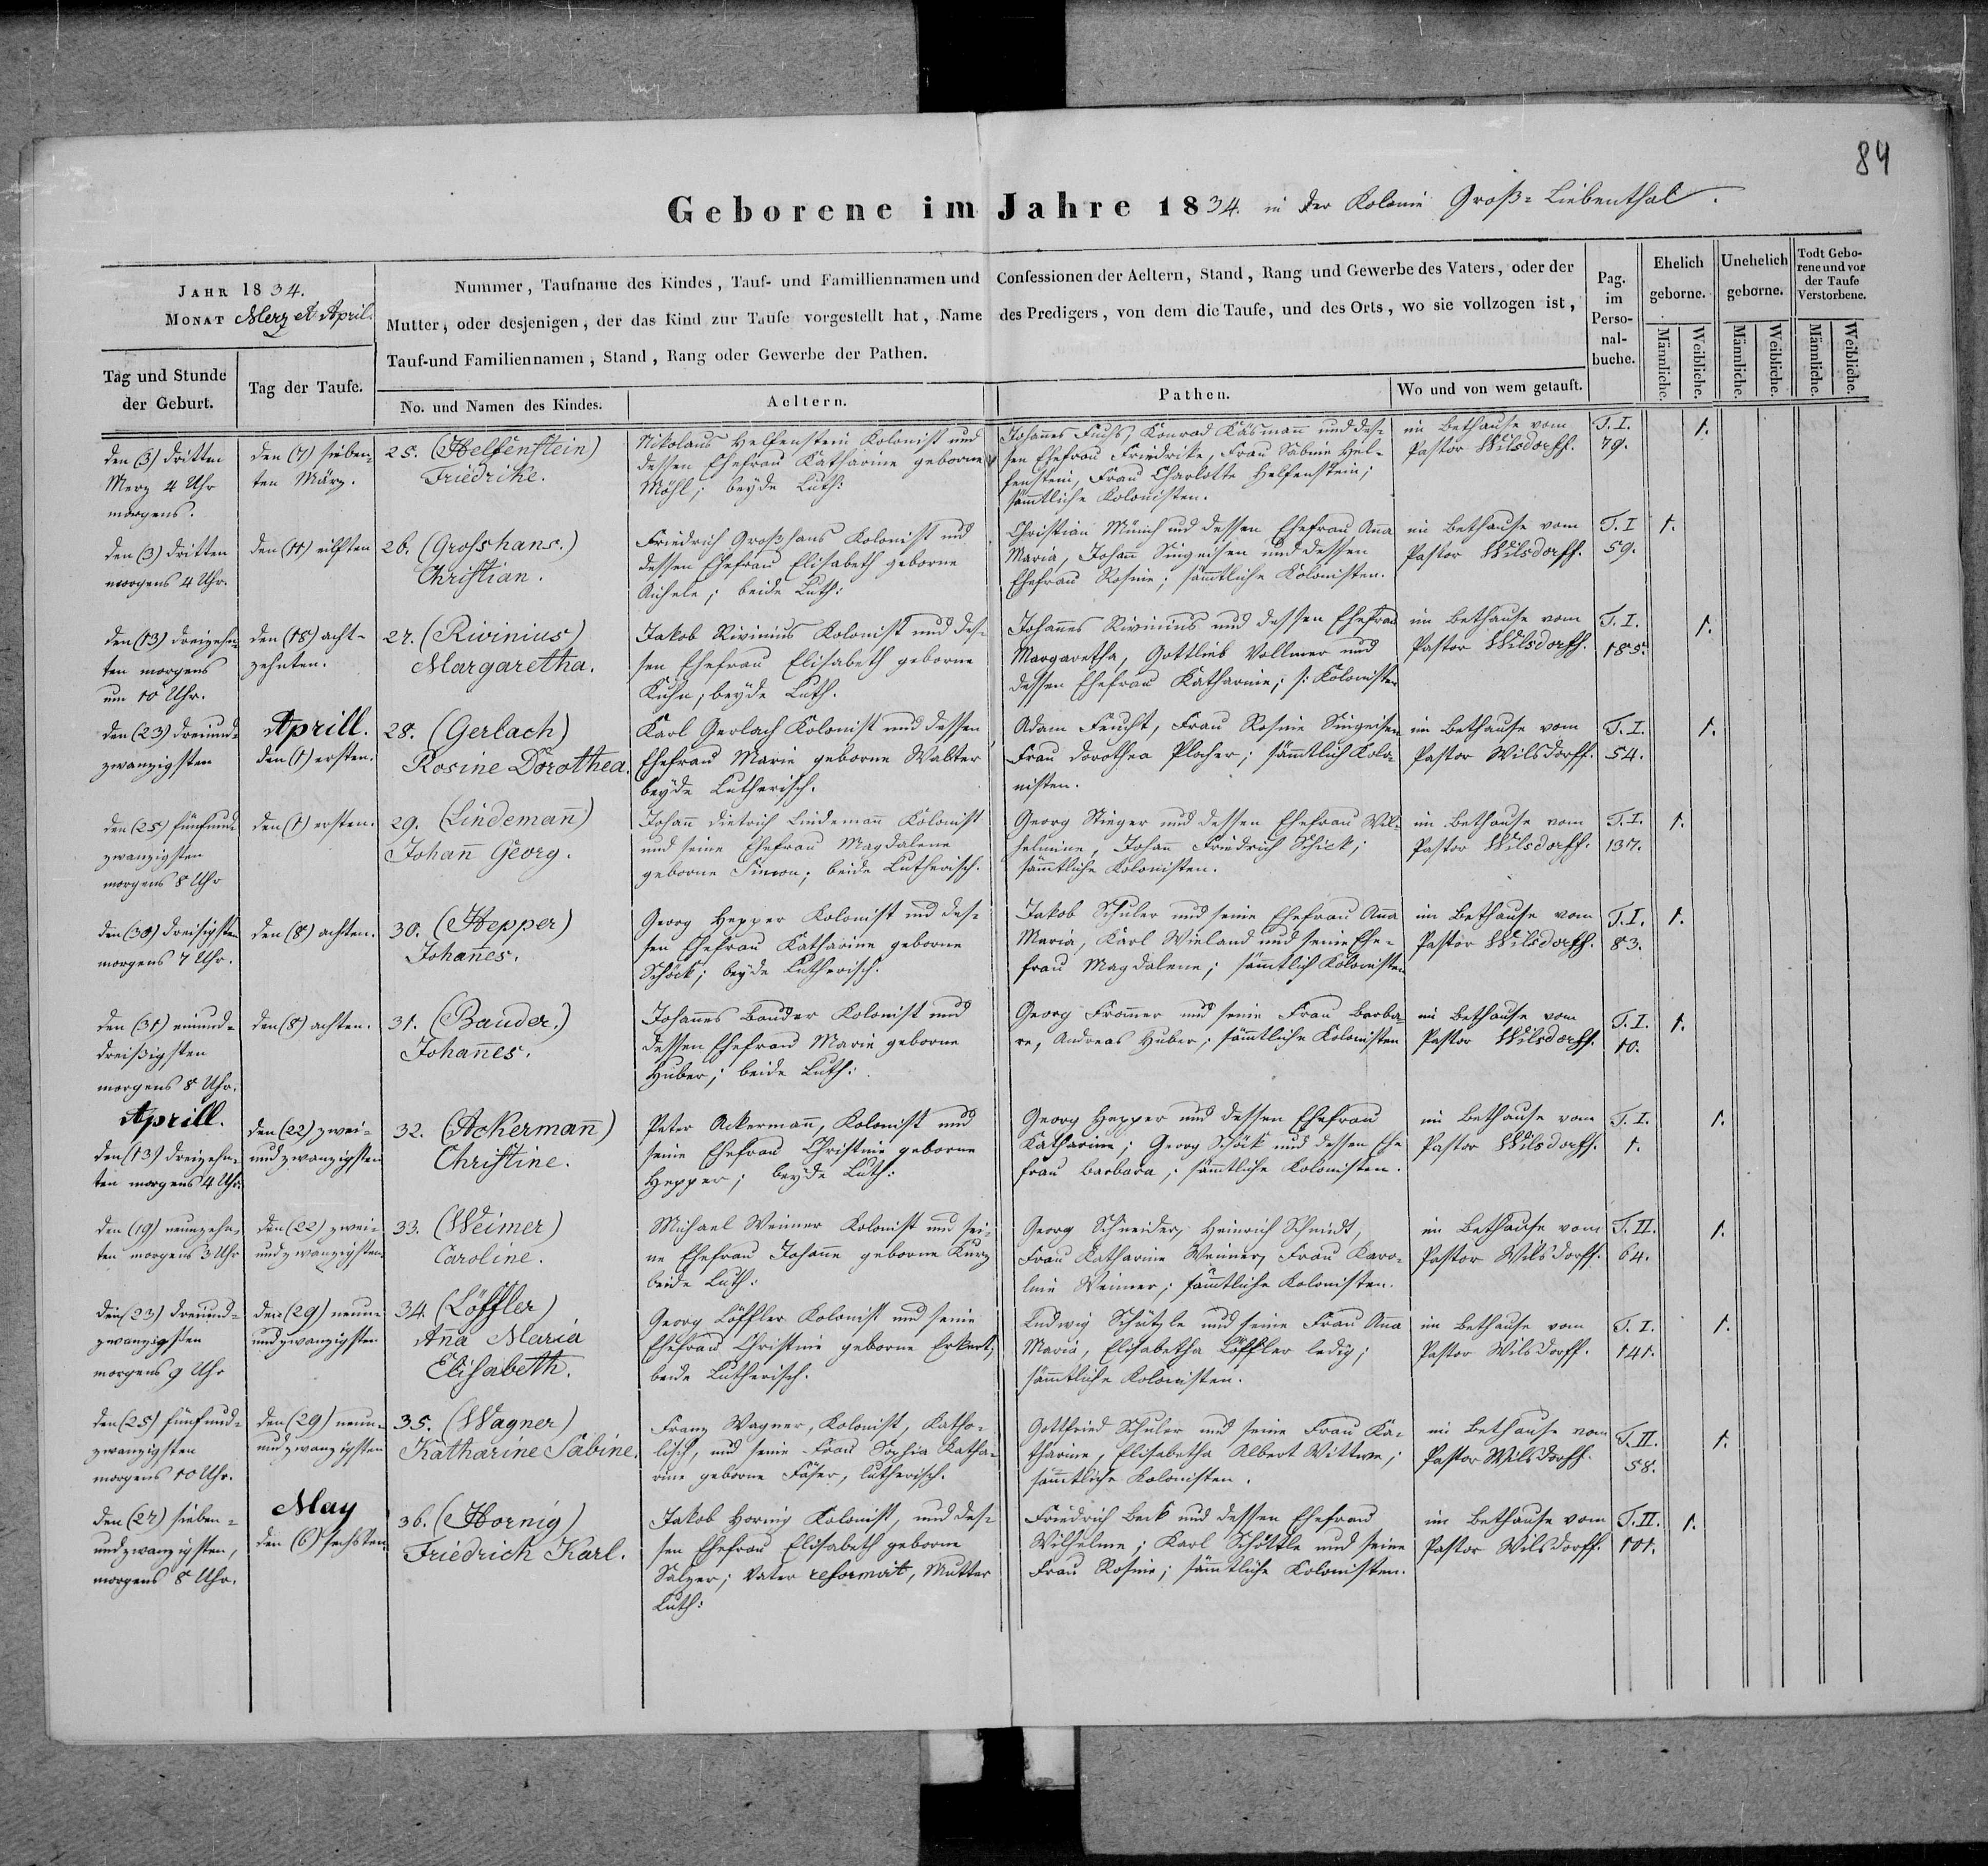 84
Geborene im Jahre 1834. in der Kolonie Groß-Liebenthal.
JAHR 1834.
MONAT Merz et April.
Nummer, Taufname des Kindes, Tauf- und Familliennamen und Confessionen der Aeltern, Stand, Rang und Gewerbe des Vaters, oder der
Mutter, oder desjenigen, der das Kind zur Taufe vorgestellt hat, Name des Predigers, von dem die Taufe, und des Orts, wo sie vollzogen ist,
Tauf-und Familiennamen, Stand, Rang oder Gewerbe der Pathen.
Pag.
im
Perso-
nal-
buche.
Ehelich
geborne.
Unehelich
geborne.
Todt Gebo-
rene und vor
der Taufe
Verstorbene.
Männliche.
Weibliche.
Männliche.
Weibliche.
Männliche.
Weibliche.
Tag und Stunde
der Geburt.
Tag der Taufe.
No. und Namen des Kindes.
Aeltern.
Pathen.
Wo und von wem getauft.
den (3) dritten
Merz 4 Uhr
morgens.
den (7) sieben-
ten März.
25. (Helfenstein)
Friedrike.
Nikolaus Helfenstein Kolonist und
dessen Ehefrau Katharine geborne
Möhl; beyde Luth:
Johannes Fuchs, Konrad Käsmann und des-
sen Ehefrau Friedrike, Frau Sabine Hel-
fenstein, Frau Charlotte Helfenstein;
sämtliche Kolonisten.
im Bethause vom
Pastor Wilsdorff.
T. I.
79.
1.
den (3) dritten
morgens 4 Uhr.
den (11) eilften
26. (Grosshans.)
Christian.
Friedrich Großhans Kolonist und
dessen Ehefrau Elisabeth geborne
Aichele; beide Luth:
Christian Münch und dessen Ehefrau Anna
Maria, Johann Singeisen und dessen
Ehefrau Rosine; sämtliche Kolonisten.
im Bethause vom
Pastor Wilsdorff.
T. I
59.
1.
den (13) dreizehn-
ten morgens
um 10 Uhr.
den (18) acht-
zehnten.
27. (Rivinius)
Margaretha.
Jakob Rivinius Kolonist und des-
sen Ehefrau Elisabeth geborne
Kuhn; beyde Luth.
Johannes Rivinius und dessen Ehefrau
Margaretha, Gottlieb Vollmer und
dessen Ehefrau Katharine; s: Kolonisten
im Bethause vom
Pastor Wilsdorff.
T. I.
185.
1.
den (23) dreiund-
zwanzigsten
Aprill.
den (1) ersten.
28. (Gerlach)
Rosine Dorothea.
Karl Gerlach Kolonist und dessen
Ehefrau Marie geborne Walter
beyde Lutherisch.
Adam Feucht, Frau Rosine Singeisen
Frau Dorothea Plocher; sämtlich Kolo-
nisten.
im Bethause vom
Pastor Wilsdorff.
T. I.
54.
1.
den (25) fünfund-
zwanzigsten
morgens 8 Uhr
den (1) ersten.
29. (Lindemann)
Johann Georg.
Johann Dietrich Lindemann Kolonist
und seine Ehefrau Magdalene
geborne Simon; beide Lutherisch.
Georg Stieger und dessen Ehefrau Wil-
helmine, Johann Friedrich Schick;
sämtliche Kolonisten.
im Bethause vom
Pastor Wilsdorff.
T. I.
137.
1.
den (30) dreisigsten
morgens 7 Uhr.
den (8) achten.
30. (Hepper)
Johannes.
Georg Hepper Kolonist und des-
sen Ehefrau Katharine geborne
Schöck; beyde Lutherisch.
Jakob Schuler und seine Ehefrau Anna
Maria, Karl Wieland und seine Ehe-
frau Magdalene; sämtlich Kolonisten
im Bethause vom
Pastor Wilsdorff.
T. I.
83.
1.
den (31) einund-
dreißigsten
morgens 8 Uhr.
den (8) achten.
31. (Bauder.)
Johannes.
Johannes Bauder Kolonist und
dessen Ehefrau Marie geborne
Huber; beide Luth:
Georg Frommer und seine Frau Barba-
re, Andreas Huber; sämtliche Kolonisten
im Bethause vom
Pastor Wilsdorff.
T. I.
10.
1.
Aprill.
den (13) dreizehn-
ten morgens 4 Uhr.
den (22) zwei-
undzwanzigsten
32. (Ackermann)
Christine.
Peter Ackermann, Kolonist und
seine Ehefrau Christine geborne
Hepper; beyde Luth:
Georg Hepper und dessen Ehefrau
Katharine; Georg Schöck und dessen Ehe
frau Barbara; sämtliche Kolonisten.
im Bethause vom
Pastor Wilsdorff.
T. I.
1.
1.
den (19) neunzehn-
ten morgens 3 Uhr
den (22) zwei-
undzwanzigsten.
33. (Weimer)
Caroline.
Michael Weimer Kolonist und sei-
ne Ehefrau Johanne geborne Kurz
beide Luth:
Georg Schneider, Heinrich Schmidt,
Frau Katharine Weimer, Frau Karo-
line Weimer; sämtliche Kolonisten.
im Bethause vom
Pastor Wilsdorff.
T. II.
64.
1.
den (23) dreiund-
zwanzigsten
morgens 9 Uhr
den (29) neun-
undzwanzigsten
34. (Löffler)
Anna Maria
Elisabeth.
Georg Löffler Kolonist und seine
Ehefrau Christine geborne Erkert;
beide Lutherisch.
Ludwig Schützle und seine Frau Anna
Maria, Elisabetha Löffler ledig;
sämtliche Kolonisten.
im Bethause vom
Pastor Wilsdorff.
T. I.
141.
1.
den (25) fünfund-
zwanzigsten
morgens 10 Uhr.
den (29) neun-
undzwanzigsten
35. (Wagner)
Katharine Sabine.
Franz Wagner, Kolonist, Katho-
lisch, und seine Frau Sophia Katha-
rine geborne Fäser, lutherisch.
Gottfried Schuler und seine Frau Ka-
tharine, Elisabetha Albert Wittwe;
sämtliche Kolonisten.
im Bethause vom
Pastor Wilsdorff.
T. II.
58.
1.
den (27) sieben-
undzwanzigsten,
morgens 8 Uhr.
May
den (6) sechsten
36. (Hornig)
Friedrich Karl.
Jakob Hornig Kolonist, und des-
sen Ehefrau Elisabeth geborne
Salzer; Vater reformirt, Mutter
Luth:
Friedrich Beck und dessen Ehefrau
Wilhelmine; Karl Schöttle und seine
Frau Rosine; sämtliche Kolonisten.
im Bethause vom
Pastor Wilsdorff.
T. II.
101.
1.